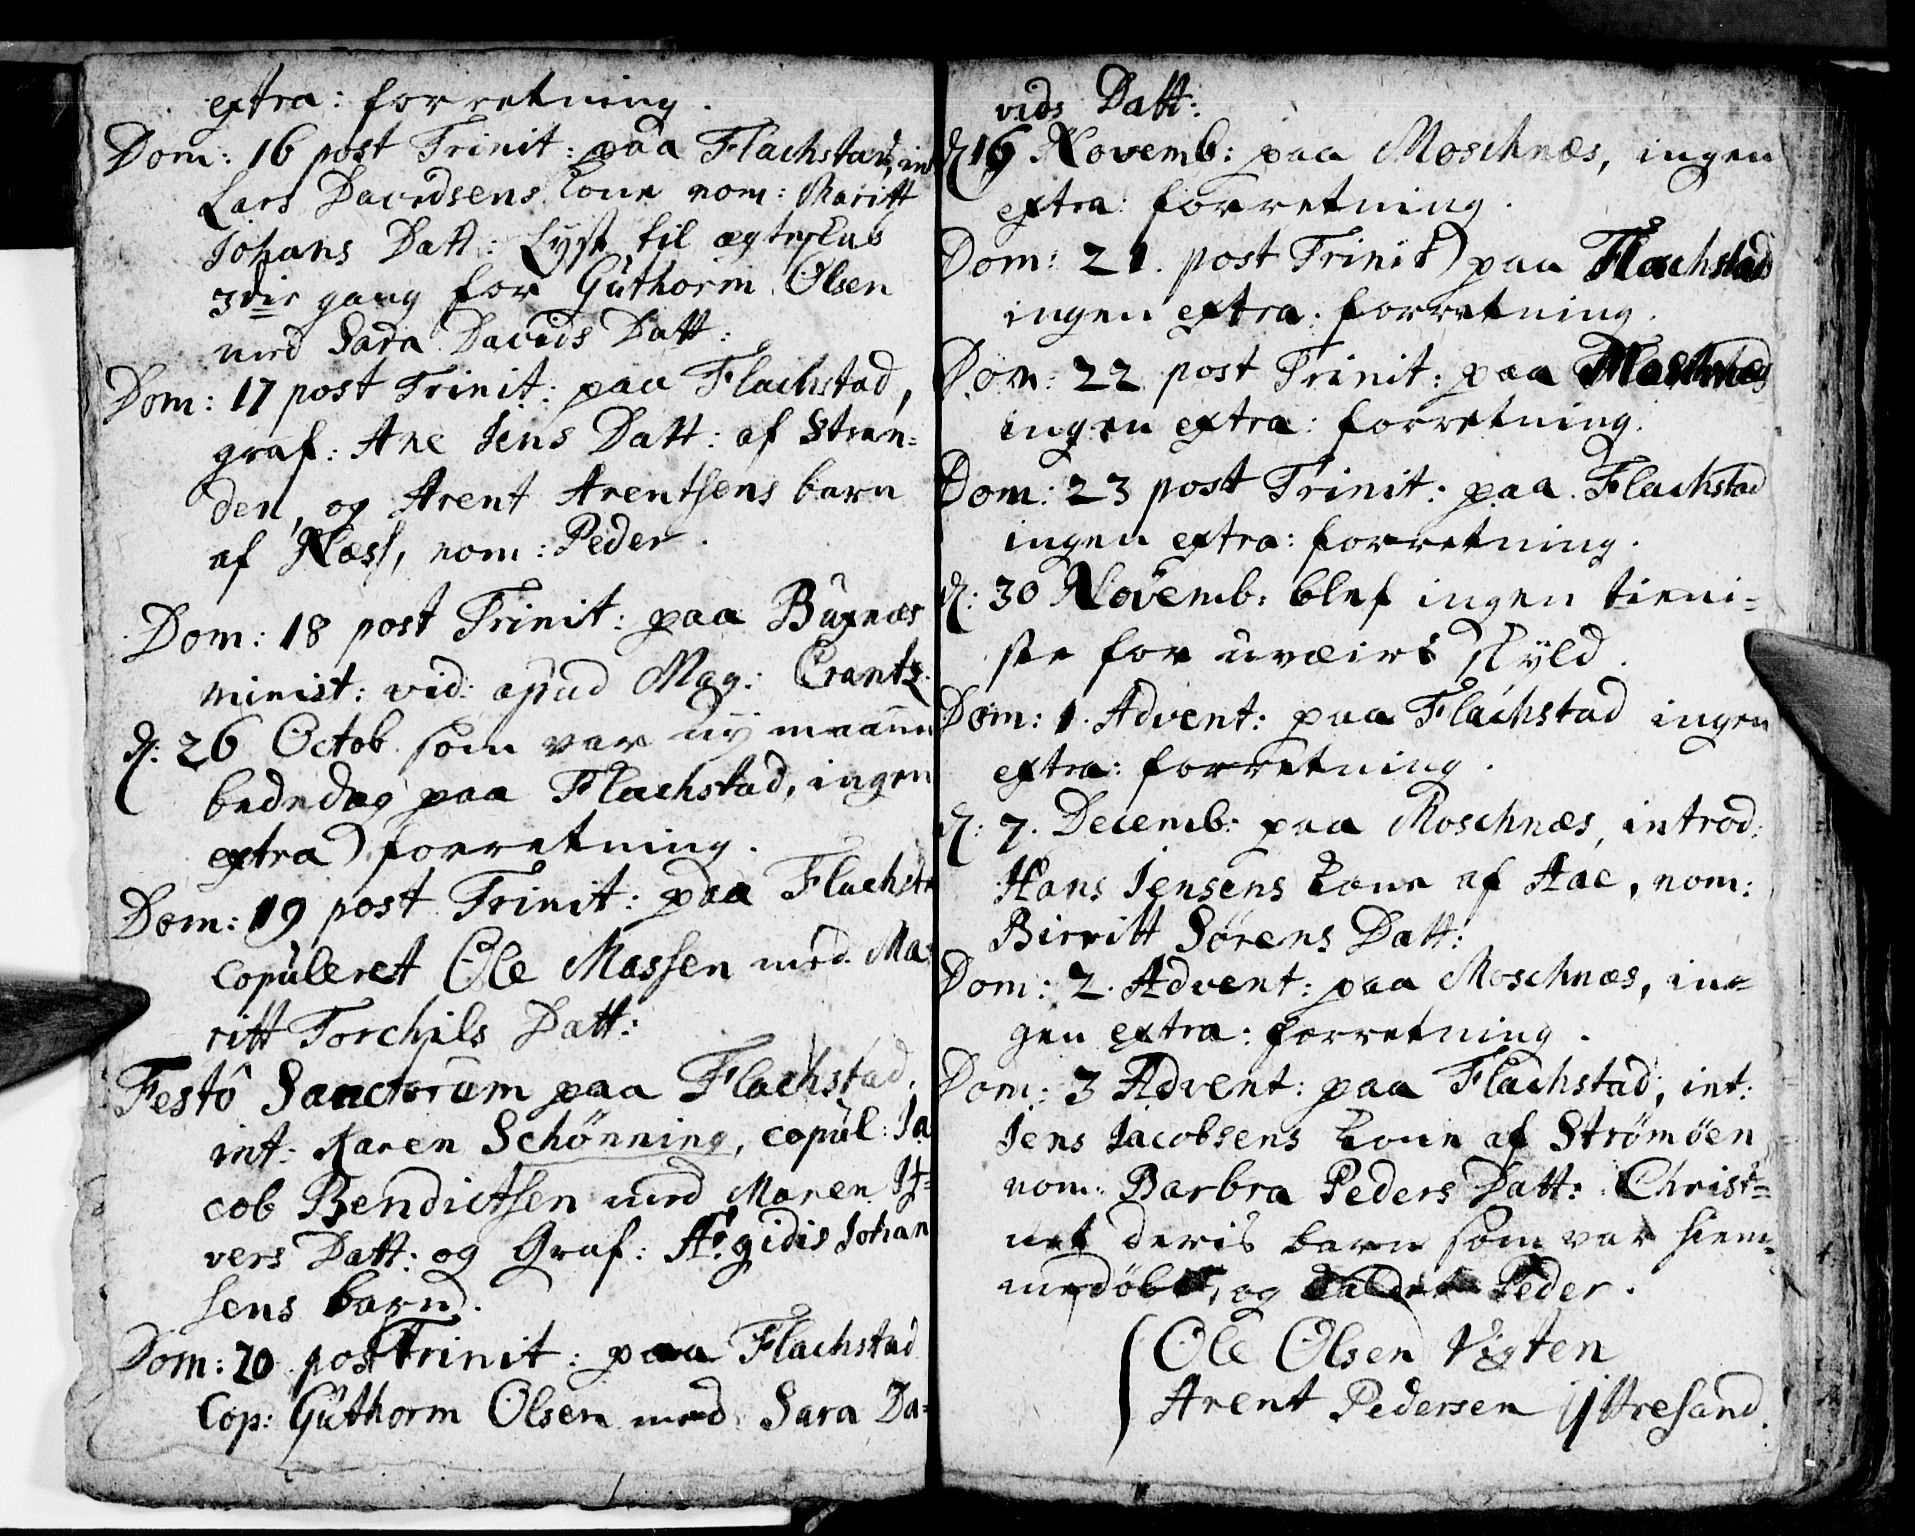 extra: forretning.
Dom: 16 post Trinit: paa Flachstad, int
Lars Davidsens kone nom: Maritt
Johans Datt: Lyst til ægteskab
3die gang for Guthorm Olsen
med Sara Davids Datt:
Dom: 17 post Trinit: paa Flachstad,
graf: Ane Jens Datt: af Stran=
den, og Arent Arentsens barn
af Næss, nom: Peder.
Dom: 18 post Trinit: paa Buxnæs
minist: vid: apud Mag: Crantz.
d: 26 Octob. som var ny maane
bededag paa Flachstad, ingen
extra forretning.
Dom: 19 post Trinit: paa Flachsta
copuleret Ole Massen med Ma=
ritt Torchils Datt:
Festo Sanctorum paa Flachstad,
int: Karen Schønning, copul: Ja
cob Bendictsen med Maren If=
vers Datt: og Graf: Ægidis Johan
sens barn.
Dom: 20 post Trinit: paa Flachstad
Cop: Guthorm Olsen med Sara Da=
vids Datt:
d: 16 Novemb: paa Moschnæs, ingen
extra: forretning.
Dom: 21. post Trinit paa Flachstad
ingen extra: forretning.
Dom: 22 post Trinit: paa Moschnæs
ingen extra: forretning.
Dom: 23 post Trinit: paa Flachstad
ingen extra: forretning.
d: 30 Novemb: blef ingen tieni=
ste for uveirs skyld.
Dom: 1. Advent: paa Flachstad ingen
extra: forretning.
d: 7. Decemb: paa Moschnæs, introd:
Hans Jensens kone af Aae, nom:
Birritt Sørens Datt:
Dom: 2. Advent: paa Moschnæs, in=
gen extra: forretning.
Dom: 3 Advent: paa Flachstad, int:
Jens Jacobsens kone af Strømøen
nom: Barbra Peders Datt: Christ=
net deris barn som var hiem=
medøbt, og kaldet Peder.
Ole Olsen Vigten
Arent Pedersen Yttresand.